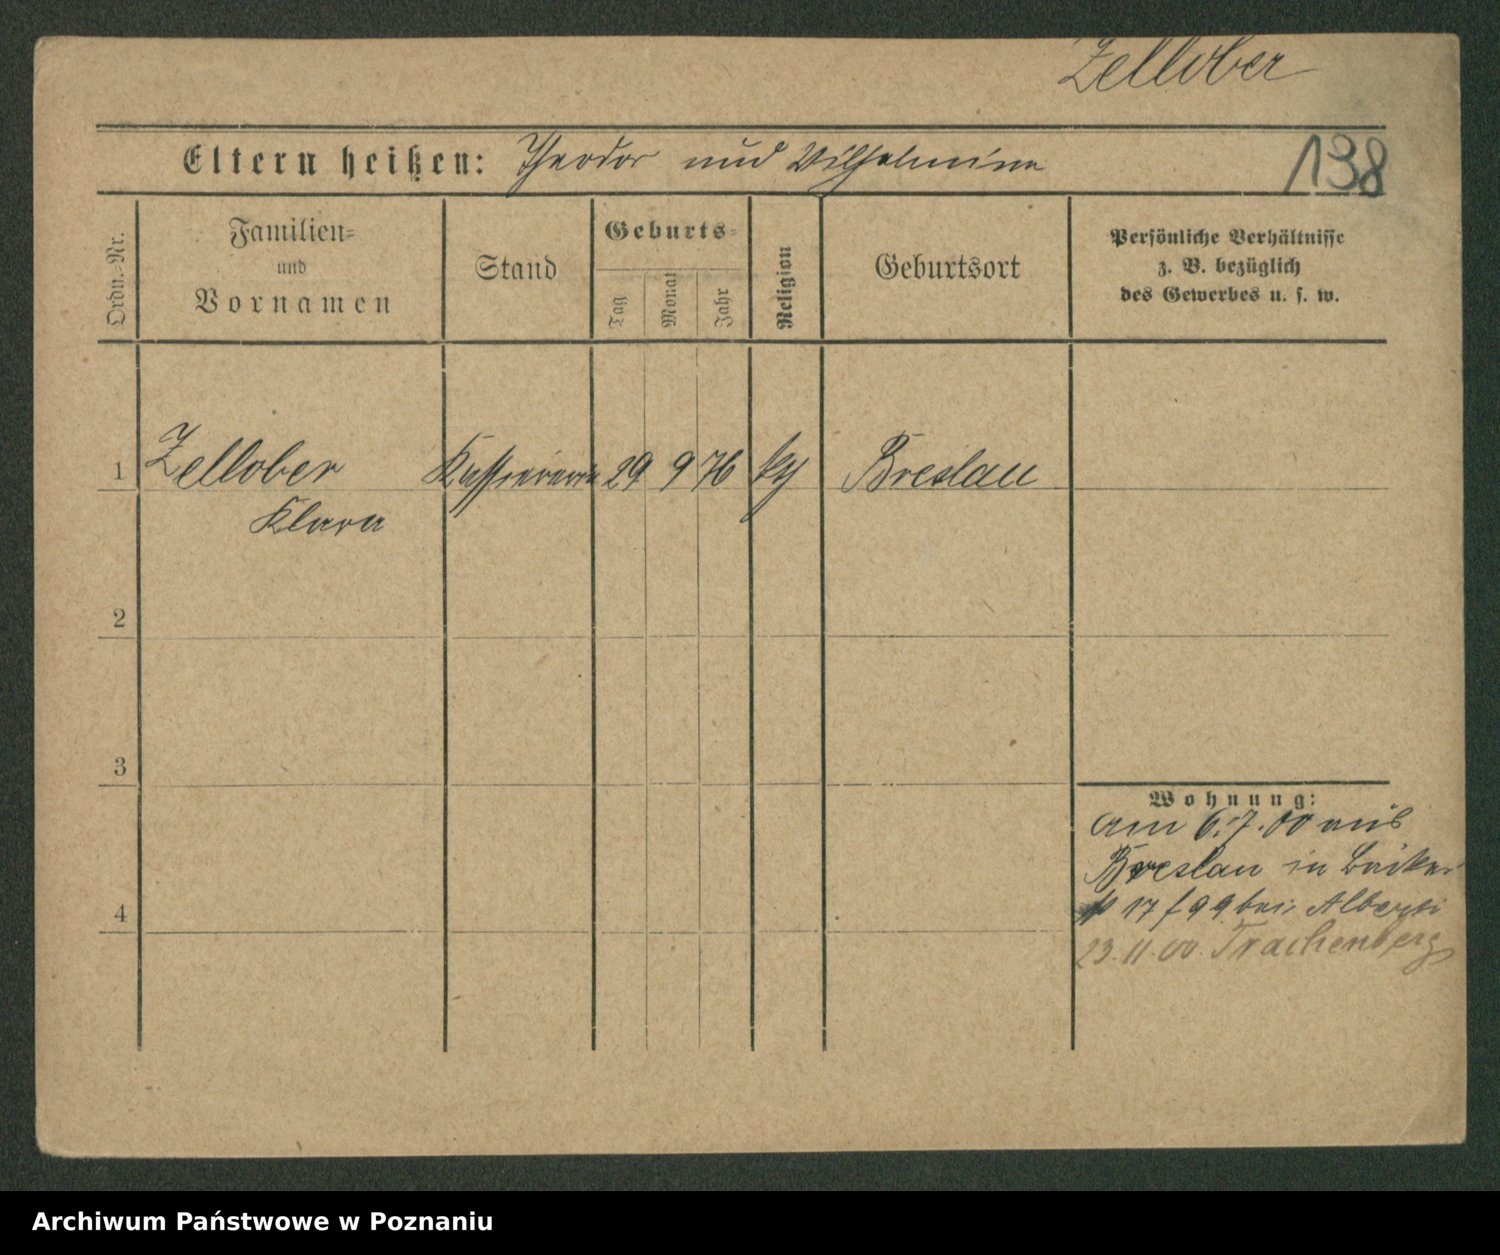 Zellober
Eltern heißen: Theodor und Wilhelmine
138
Ordn.-Nr.
Familien-
und
Vornamen
Stand
Geburts-
Tag
Monat
Jahr
Religion
Geburtsort
Persönliche Verhältnisse
z. B. bezüglich
des Gewerbes u. s. w.
1 Zellober Kassiererin 29 9 76 Breslau
Klara
2
3
Wohnung:
am 6.7.00 aus
Breslau in
17 f 99 bei
4
23.11.00. Trachenberg
Archiwum Państwowe w Poznaniu